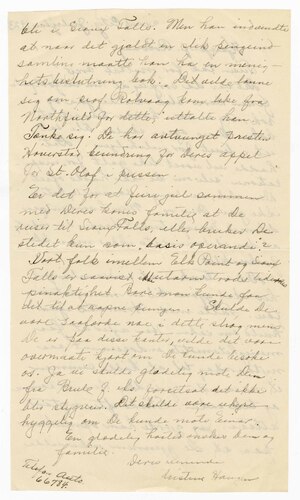 bli i Sioux Falls. Men han indvendte
at naar det gjaldt en slik pengeind-
samling maatte han ha en menig-
hets beslutning bak. Det vilde lønne
sig om prof. Rølvaag kom like fra
Northfield for dette, uttalte han
Tenke sig! De har avtvunget presten
Hovrstad beundring for Deres appel
for St. Olaf i pressen
Er det for at feire jul sammen
med Deres kones familie at De
reiser til Sioux Falls, eller bruker De
stedet kun som "basis operandi"?
Vort folk imellem Elk Point og Sioux
Falls er saavist
pinaktighet. Bare man kunde faa
det til at aapne pungen. Skulde De
være saaforde noe i dette strøg mens
De er paa disse kanter, vilde det være
overmaate kjært om De kunde besøke
os. Ja vi skulde gladelig møte Dem
fra Brule J. hvis føret saa det ikke
blir styggere. Det skulde være uhyre
hyggelig om De kunde møte Einar.
En gladelig høitid ønskes Dem og
familie.
Deres
Kristine Haugen